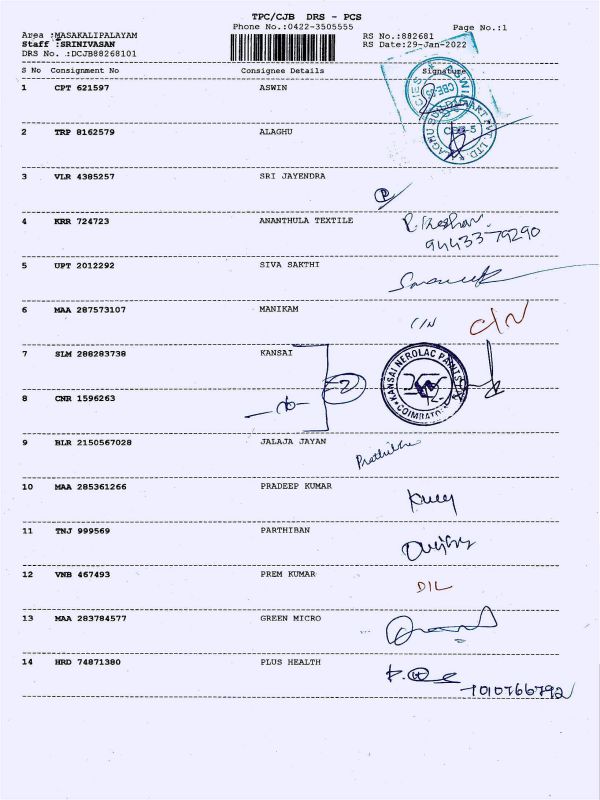 TPC/CJB DRS - PCS
Phone No.:0422-3505555 Page No.:1
Area :MASAKALIPALAYAM
Staff :SRINIVASAN
DRS No. :DCJB88268101
RS No.:882681
RS Date:29-Jan-2022
S No Consignment No Consignee Details Signature
1 CPT 621597 ASWIN
2 TRP 8162579 ALAGHU
CBE-5
3 VLR 4385257 SRI JAYENDRA
P
4 KRR 724723 ANANTHULA TEXTILE
94433 79290
5 UPT 2012292 SIVA SAKTHI
6 MAA 287573107 MANIKAM C/N C/N
7 SLM 288283738 KANSAI
2
KANSAI NEROLAC PAINTS
COIMBATORE
8 CNR 1596263
9 BLR 2150567028 JALAJA JAYAN
10 MAA 285361266 PRADEEP KUMAR
11 TNJ 999569 PARTHIBAN
12 VNB 467493 PREM KUMAR DIL
13 MAA 283784577 GREEN MICRO
14 HRD 74871380 PLUS HEALTH
7010766792